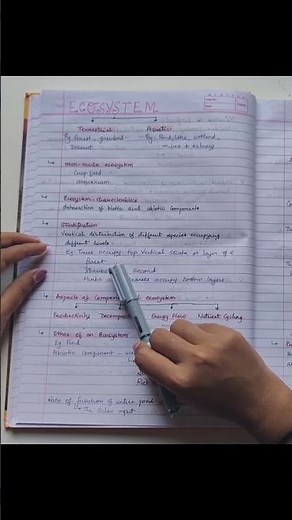 ECOSYSTEM
Terrestrial Aquatic
Eg. Forest, grassland Eg. Pond, lake, wetland,
Desert river & estuary
Man-made ecosystem
Crop field
Aquarium
Ecosystem characteristics
Interaction of biotic and abiotic components
Stratification
Vertical distribution of different species occupying
different levels.
Eg. Trees occupy top vertical strata or layer of a
forest
Shrubs Second
Herbs occupy bottom layers
Aspects of Components ecosystem
Productivity Decompo Energy Flow Nutrient Cycling
Ecosystem
Eg. Pond
Abiotic component
Rate of function of entire pond
The Solar input